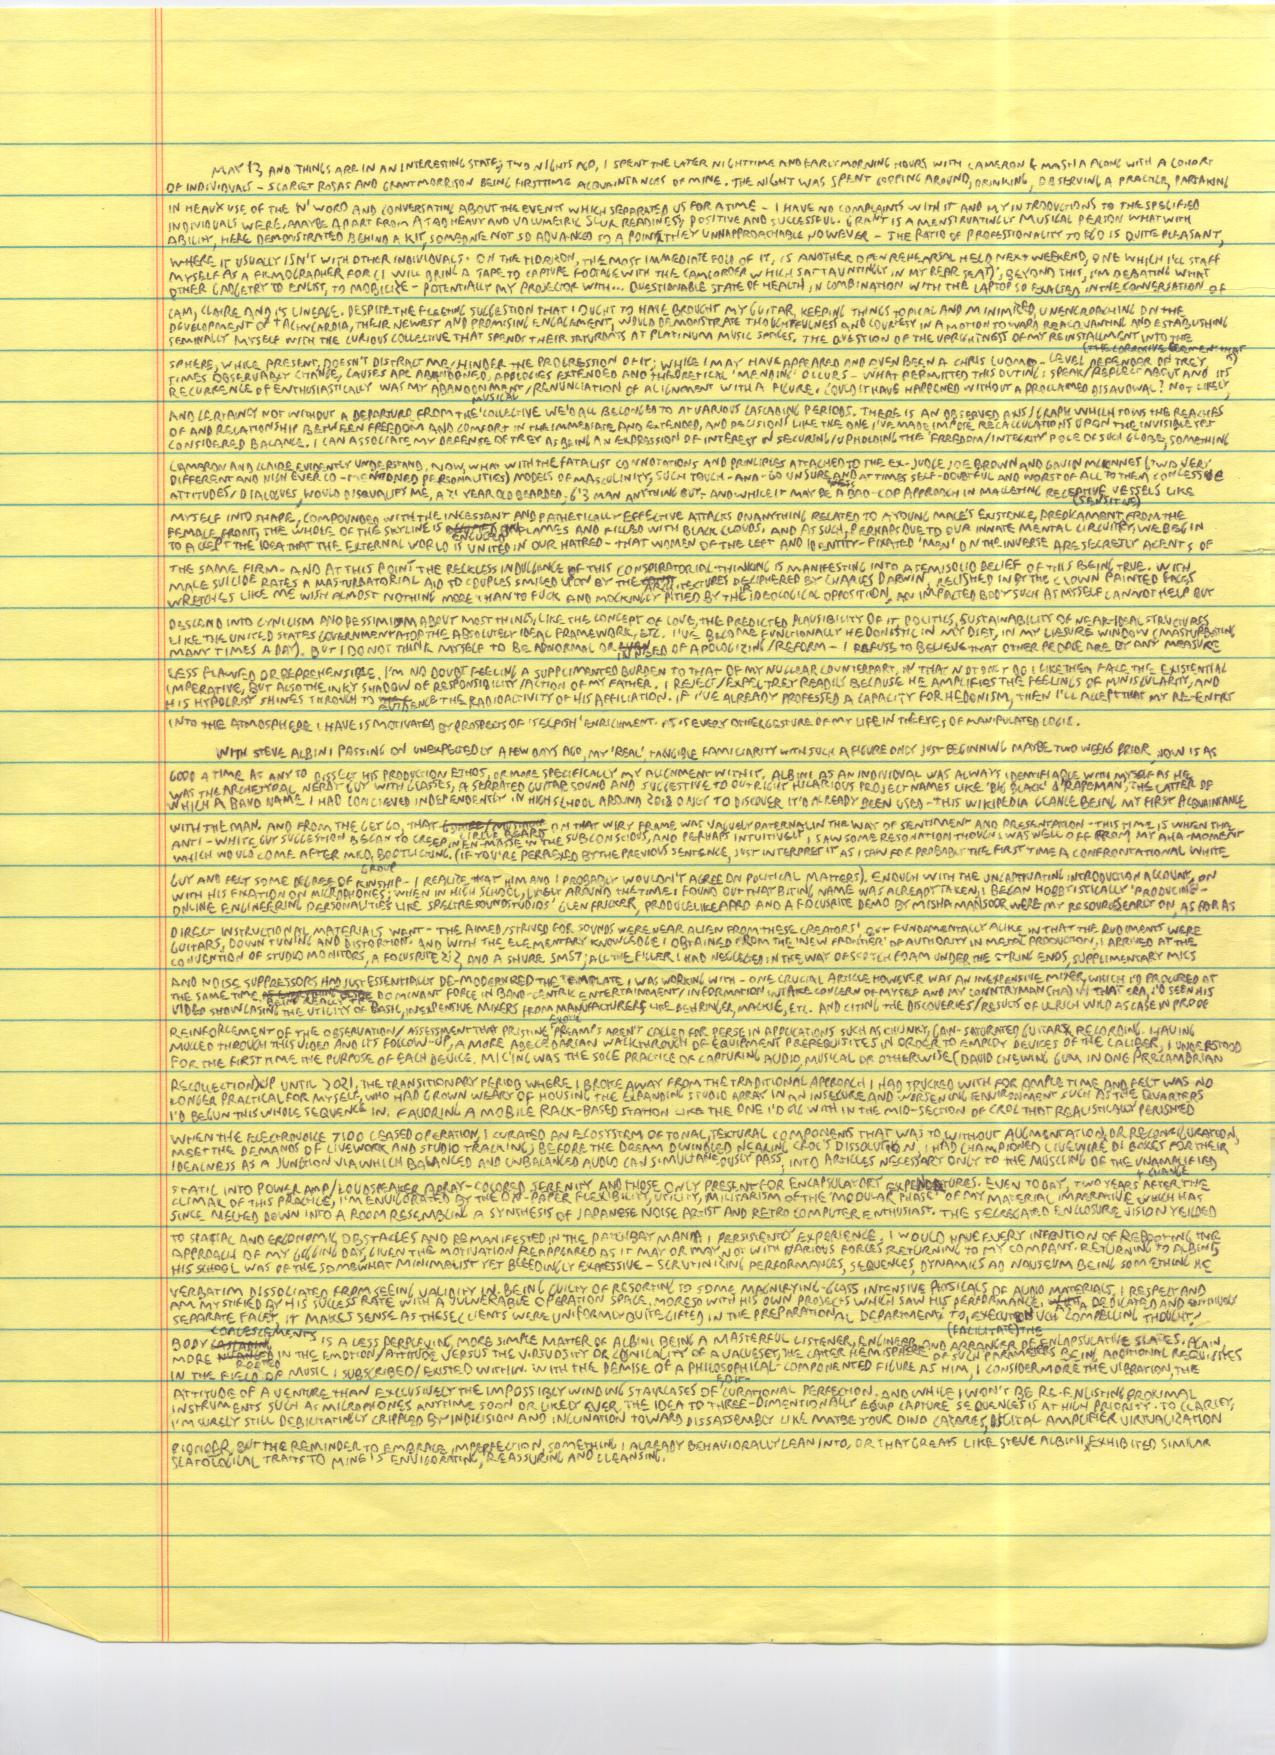 MAY 13, AND THINGS ARE IN AN INTERESTING STATE; TWO NIGHTS AGO, I SPENT THE LATER NIGHTTIME AND EARLY MORNING HOURS WITH CAMERON & MASHA ALONG WITH A COHORT
OF INDIVIDUALS - SCARLET ROSAS AND GRANT MORRISON BEING FIRSTTIME ACQUAINTANCES OF MINE. THE NIGHT WAS SPENT COPPING AROUND, DRINKING, OBSERVING A PRACTICE, PARTAKING
IN HEAVY USE OF THE 'N' WORD AND CONVERSATING ABOUT THE EVENTS WHICH SEPARATED US FOR A TIME - I HAVE NO COMPLAINTS WITH IT AND MY INTRODUCTIONS TO THE SPECIFIED
INDIVIDUALS WERE, MAYBE APART FROM A TAD HEAVY AND VOLUMETRIC SLUR READINESS, POSITIVE AND SUCCESSFUL. GRANT IS A MENSTRUATINGLY MUSICAL PERSON WHAT WITH
ABILITY, HERE DEMONSTRATED BEHIND A KIT, SOMEONE NOT SO ADVANCED TO A POINT THEY UNNAPPROACHABLE HOWEVER - THE RATIO OF PROFESSIONALITY TO EGO IS QUITE PLEASANT,
WHERE IT USUALLY ISN'T WITH OTHER INDIVIDUALS. ON THE HORIZON, THE MOST IMMEDIATE FOLD OF IT, IS ANOTHER OPEN REHEARSAL HELD NEXT WEEKEND, ONE WHICH I'LL STAFF
MYSELF AS A FILMOGRAPHER FOR (I WILL BRING A TAPE TO CAPTURE FOOTAGE WITH THE CAMCORDER WHICH SAT TAUNTINGLY IN MY REAR SEAT); BEYOND THIS, I'M DEBATING WHAT
OTHER GADGETRY TO ENLIST, TO MOBILIZE - POTENTIALLY MY PROJECTOR WITH... QUESTIONABLE STATE OF HEALTH, IN COMBINATION WITH THE LAPTOP SO EXALTED IN THE CONVERSATION OF
CAM, CLAIRE AND I'S LINEAGE. DESPITE THE FLEETING SUGGESTION THAT I OUGHT TO HAVE BROUGHT MY GUITAR, KEEPING THINGS TOPICAL AND MINIMIZED, UNENCROACHING ON THE
DEVELOPMENT OF TACHYCARDIA, THEIR NEWEST AND PROMISING ENGAGEMENT, WOULD DEMONSTRATE THOUGHTFULNESS AND COURTESY IN A MOTION TOWARD REACQUAINTING AND ESTABLISHING
SEMINALLY MYSELF WITH THE CURIOUS COLLECTIVE THAT SPENDS THEIR SATURDAYS AT PLATINUM MUSIC SPACES. THE QUESTION OF THE UPRIGHTNESS OF MY REINSTALLMENT INTO THE
(THE CORROSIVE ELEMENT THAT)
SPHERE, WHILE PRESENT, DOESN'T DISTRACT ME/HINDER THE PROGRESSION OF IT; WHILE I MAY HAVE APPEARED AND EVEN BEEN A CHRIS CUOMO-LEVEL DEFENDER ON TREY
TIMES OBSERVABLY CITANGE, CAUSES ARE ABANDONED, APOLOGIES EXTENDED AND THEORETICAL 'MENDING' OCCURS - WHAT PERMITTED THIS OUTING I SPEAK/REFLECT ABOUT AND ITS
RECURRENCE OF ENTHUSIASTICALLY WAS MY ABANDONMENT/RENUNCIATION OF ALIGNMENT WITH A FIGURE. COULD IT HAVE HAPPENED WITHOUT A PROCLAIMED DISAVOWAL? NOT LIKELY,
MUSICAL
AND CERTAINLY NOT WITHOUT A DEPARTURE FROM THE COLLECTIVE WE'D ALL BELONGED TO AT VARIOUS CASCADING PERIODS. THERE IS AN OBSERVED AXIS/GRAPH WHICH TOWS THE REACHES
OF AND RELATIONSHIP BETWEEN FREEDOM AND COMFORT IN THE IMMEDIATE AND EXTENDED, AND DECISIONS LIKE THE ONE I'VE MADE IMPOSE RECALCULATIONS UPON THE INVISIBLE YET
CONSIDERED BALANCE. I CAN ASSOCIATE MY DEFENSE OF TREY AS BEING AN EXPRESSION OF INTEREST IN SECURING/UPHOLDING THE 'FREEDOM/INTEGRITY' POLE OF SUCH GLOBE, SOMETHING
CAMERON AND CLAIRE EVIDENTLY UNDERSTAND. NOW, WHAT WITH THE FATALIST CONNOTATIONS AND PRINCIPLES ATTACHED TO THE EX-JUDGE JOE BROWN AND GAVIN MCINNES (TWO VERY
DIFFERENT AND NIGH EVER CO-MENTIONED PERSONALITIES) MODELS OF MASCULINITY, SUCH TOUCH-AND-GO UNSURE AND AT TIMES SELF-DOUBTFUL AND WORST OF ALL TO THEM CONCESSIVE
ATTITUDES/DIALOGUES, WOULD DISQUALIFY ME, A 21 YEAR OLD BEARDED, 6'3 MAN ANYTHING BUT - AND WHILE IT MAY BE A BAD-COP APPROACH IN MALLETING RECEPTIVE VESSELS LIKE
(SENSITIVE)
MYSELF INTO SHAPE, COMPOUNDED WITH THE INCESSANT AND PATHETICALLY-EFFECTIVE ATTACKS ON ANYTHING RELATED TO A YOUNG MALE'S EXISTENCE, PREDICAMENT, FROM THE
FEMALE FRONT, THE WHOLE OF THE SKYLINE IS ENGULFED IN FLAMES AND FILLED WITH BLACK CLOUDS. AND AS SUCH, PERHAPS DUE TO OUR INNATE MENTAL CIRCUITRY, WE BEGIN
TO ACCEPT THE IDEA THAT THE EXTERNAL WORLD IS UNITED IN OUR HATRED - THAT WOMEN OF THE LEFT AND IDENTITY-FIXATED 'MEN' ON THE INVERSE ARE SECRETLY AGENTS OF
THE SAME FIRM. AND AT THIS POINT THE RECKLESS INDULGENCE OF THIS CONSPIRATORIAL THINKING IS MANIFESTING INTO A SEMISOLID BELIEF OF THIS BEING TRUE. WITH
MALE SUICIDE RATES A MASTURBATORIAL AID TO COUPLES SMILED UPON BY THE ARCHITECTURES DECIPHERED BY CHARLES DARWIN, RELISHED IN BY THE CLOWN PAINTED FACES
WRETCHES LIKE ME WISH ALMOST NOTHING MORE THAN TO FUCK AND MOCKINGLY PITIED BY THE IDEOLOGICAL OPPOSITION, AN IMPACTED BODY SUCH AS MYSELF CANNOT HELP BUT
DESCEND INTO CYNICISM AND PESSIMISM ABOUT MOST THINGS, LIKE THE CONCEPT OF LOVE, THE PREDICTED PLAUSIBILITY OF IT, POLITICS, SUSTAINABILITY OF NEAR-IDEAL STRUCTURES
LIKE THE UNITED STATES GOVERNMENT ATOP THE ABSOLUTELY IDEAL FRAMEWORK, ETC. I'VE BECOME FUNCTIONALLY HEDONISTIC IN MY DIET, IN MY LIESURE WINDOW (MASTURBATING
MANY TIMES A DAY). BUT I DO NOT THINK MYSELF TO BE ABNORMAL OR IN NEED OF APOLOGIZING/REFORM - I REFUSE TO BELIEVE THAT OTHER PEOPLE ARE BY ANY MEASURE
LESS FLAWED OR REPREHENSIBLE. I'M NO DOUBT FEELING A SUPPLIMENTED BURDEN TO THAT OF MY NUCLEAR COUNTERPART, IN THAT NOT ONLY DO I LIKE THEM FACE THE EXISTENTIAL
IMPERATIVE, BUT ALSO THE INKY SHADOW OF RESPONSIBILITY/ACTION OF MY FATHER. I REJECT/EXPEL TREY READILY BECAUSE HE AMPLIFIES THE FEELINGS OF MINISCULARITY, AND
HIS HYPOCRISY SHINES THROUGH TO EVIDENCE THE RADIOACTIVITY OF HIS AFFILIATION. IF I'VE ALREADY PROFESSED A CAPACITY FOR HEDONISM, THEN I'LL ACCEPT THAT MY RE-ENTRY
INTO THE ATMOSPHERE I HAVE IS MOTIVATED BY PROSPECTS OF 'SELFISH' ENRICHMENT. IT IS EVERY OTHER GESTURE OF MY LIFE IN THE EYES OF MANIPULATED LOGIC.
WITH STEVE ALBINI PASSING ON UNEXPECTEDLY A FEW DAYS AGO, MY 'REAL', TANGIBLE FAMILIARITY WITH SUCH A FIGURE ONLY JUST BEGINNING MAYBE TWO WEEKS PRIOR, NOW IS AS
GOOD A TIME AS ANY TO DISSECT HIS PRODUCTION ETHOS, OR MORE SPECIFICALLY MY ALIGNMENT WITH IT. ALBINI AS AN INDIVIDUAL WAS ALWAYS IDENTIFIABLE WITH MYSELF AS HE
WAS THE ARCHETYPAL NERDY GUY WITH GLASSES, A SERRATED GUITAR SOUND AND SUGGESTIVE TO OUTRIGHT HILARIOUS PROJECT NAMES LIKE 'BIG BLACK' & 'RAPEMAN', THE LATTER OF
WHICH A BAND NAME I HAD CONCIEVED INDEPENDENTLY IN HIGH SCHOOL AROUND 2018 ONLY TO DISCOVER IT'D ALREADY BEEN USED - THIS WIKIPEDIA GLANCE BEING MY FIRST ACQUAINTANCE
WITH THE MAN. AND FROM THE GET GO, THAT CIRCLE BEARD ON THAT WIRY FRAME WAS VAGUELY PATERNAL IN THE WAY OF SENTIMENT AND PRESENTATION - THIS TIME IS WHEN THE
ANTI-WHITE GUY SUGGESTION BEGAN TO CREEP EN-MASSE IN THE SUBCONSCIOUS, AND PERHAPS INTUITIVELY, I SAW SOME RESONATION THOUGH I WAS WELL OFF FROM MY AHA-MOMENT
WHICH WOULD COME AFTER MILD, BOOTLICKING. (IF YOU'RE PERPLEXED BY THE PREVIOUS SENTENCE, JUST INTERPRET IT AS I SAW FOR PROBABLY THE FIRST TIME A CONFRONTATIONAL WHITE
GROUP
GUY AND FELT SOME DEGREE OF KINSHIP - I REALIZE THAT HIM AND I PROBABLY WOULDN'T AGREE ON POLITICAL MATTERS). ENOUGH WITH THE UNCAPTIVATING INTRODUCTION ACCOUNT, ON
WITH HIS FIXATION ON MICROPHONES; WHEN IN HIGH SCHOOL, LIKELY AROUND THE TIME I FOUND OUT THAT BITING NAME WAS ALREADY TAKEN, I BEGAN HOBBYISTICALLY 'PRODUCING'-
ONLINE ENGINEERING PERSONALITIES LIKE SPECTRESOUNDSTUDIOS' GLENN FRICKER, PRODUCELIKEAPRO AND A FOCUSRITE DEMO BY MISHA MANSOOR WERE MY RESOURCES EARLY ON, AS FAR AS
DIRECT INSTRUCTIONAL MATERIALS WENT - THE AIMED/STRIVED FOR SOUNDS WERE NEAR ALIEN FROM THESE CREATORS', YET FUNDAMENTALLY ALIKE IN THAT THE RUDIMENTS WERE
GUITARS, DOWN TUNING AND DISTORTION. AND WITH THE ELEMENTARY KNOWLEDGE I OBTAINED FROM THE 'NEW FRONTIER' OF AUTHORITY IN METAL PRODUCTION, I ARRIVED AT THE
CONVENTION OF STUDIO MONITORS, A FOCUSRITE 2i2, AND A SHURE SM57; ALL THE FILLER I HAD NEGLECTED IN THE WAY OF SCOTCH FOAM UNDER THE STRING ENDS, SUPPLIMENTARY MICS
AND NOISE SUPPRESSORS HAD JUST ESSENTIALLY DE-MODERNIZED THE TEMPLATE I WAS WORKING WITH - ONE CRUCIAL ARTICLE HOWEVER WAS AN INEXPENSIVE MIXER, WHICH I'D PROCURED AT
THE SAME TIME. BEING REALLY THE DOMINANT FORCE IN BAND-CENTRIC ENTERTAINMENT/INFORMATION INTAKE CONCERN OF MYSELF AND MY COUNTRYMAN (MAX) IN THAT ERA, I'D SEEN HIS
VIDEO SHOWCASING THE UTILITY OF BASIC, INEXPENSIVE MIXERS FROM MANUFACTURERS LIKE BEHRINGER, MACKIE, ETC. AND CITING THE DISCOVERIES/RESULTS OF ULRICH WILD AS CASE IN PROOF
EXOTIC
REINFORCEMENT OF THE OBSERVATION/ASSESSMENT THAT PRISTINE PREAMPS AREN'T CALLED FOR PERSE IN APPLICATIONS SUCH AS CHUNKY, GAIN-SATURATED GUITAR RECORDING. HAVING
MULLED THROUGH THIS VIDEO AND ITS FOLLOW-UP, A MORE ABECEDARIAN WALKTHROUGH OF EQUIPMENT PREREQUISITES IN ORDER TO EMPLOY DEVICES OF THE CALIBER, I UNDERSTOOD
FOR THE FIRST TIME THE PURPOSE OF EACH DEVICE. MICING WAS THE SOLE PRACTICE OF CAPTURING AUDIO, MUSICAL OR OTHERWISE (DAVID CHEWING GUM IN ONE PRECAMBRIAN
RECOLLECTION) UP UNTIL 2021, THE TRANSITIONARY PERIOD WHERE I BROKE AWAY FROM THE TRADITIONAL APPROACH I HAD TRUCKED WITH FOR AMPLE TIME AND FELT WAS NO
LONGER PRACTICAL FOR MYSELF, WHO HAD GROWN WEARY OF HOUSING THE EXPANDING STUDIO ARRAY IN AN INSECURE AND WORSENING ENVIRONMENT SUCH AS THE QUARTERS
I'D BEGUN THIS WHOLE SEQUENCE IN. FAVORING A MOBILE RACK-BASED STATION LIKE THE ONE I'D GIG WITH IN THE MID-SECTION OF CROC THAT REALISTICALLY PERISHED
WHEN THE ELECTROVOICE 7100 CEASED OPERATION, I CURATED AN ECOSYSTEM OF TONAL, TEXTURAL COMPONENTS THAT WAS TO WITHOUT AUGMENTATION, OR RECONFIGURATION,
MEET THE DEMANDS OF LIVEWORK AND STUDIO TRACKING; BEFORE THE DREAM DWINDLED NEARING CROC'S DISSOLUTION, I HAD CHAMPIONED LIVEWIRE DI BOXES FOR THEIR
IDEALNESS AS A JUNCTION VIA WHICH BALANCED AND UNBALANCED AUDIO CAN SIMULTANEOUSLY PASS, INTO ARTICLES NECESSARY ONLY TO THE MUSCLING OF THE UNAMPLIFIED
+ CHANGE
STATIC INTO POWER AMP/LOUDSPEAKER ARRAY-COLORED SERENITY AND THOSE ONLY PRESENT FOR ENCAPSULATORY EXPENDITURES. EVEN TODAY, TWO YEARS AFTER THE
CLIMAX OF THIS PRACTICE, I'M ENVIGORATED BY THE ON-PAPER FLEXIBILITY, UTILITY, MILITARISM OF THE 'MODULAR PHASE' OF MY MATERIAL IMPERATIVE WHICH HAS
SINCE MELTED DOWN INTO A ROOM RESEMBLING A SYNTHESIS OF JAPANESE NOISE ARTIST AND RETRO COMPUTER ENTHUSIAST. THE SEGREGATED ENCLOSURE VISION YEILDED
TO SPATIAL AND ERGONOMIC OBSTACLES AND REMANIFESTED IN THE PATCHBAY MANIA I PERSISTENTLY EXPERIENCE, I WOULD HAVE EVERY INTENTION OF REBOOTING THE
APPROACH OF MY GIGGING DAY, GIVEN THE MOTIVATION REAPPEARED AS IT MAY OR MAY NOT WITH VARIOUS FORCES RETURNING TO MY COMPANY. RETURNING TO ALBINI,
HIS SCHOOL WAS OF THE SOMEWHAT MINIMALIST YET BLEEDINGLY EXPRESSIVE - SCRUTINIZING PERFORMANCES, SEQUENCES, DYNAMICS AD NAUSEUM BEING SOMETHING HE
VERBATIM DISSOCIATED FROM SEEING VALIDITY IN. BEING GUILTY OF RESORTING TO SOME MAGNIFYING-GLASS INTENSIVE PHYSICALS OF AUDIO MATERIALS, I RESPECT AND
AM MYSTIFIED BY HIS SUCCESS RATE WITH A VULNERABLE OPERATION SPACE, MORESO WITH HIS OWN PROJECTS WHICH SAW HIS PERFORMANCE, AS A DEDICATED AND ENTIRELY
SEPARATE FACET. IT MAKES SENSE AS THESE CLIENTS WERE UNIFORMLY QUITE GIFTED IN THE PREPARATIONAL DEPARTMENT; TO EXECUTION SUCH COMPELLING THOUGHT-
COALESCEMENTS (FACILITATE) THE
BODY IS A LESS PERPLEXING, MORE SIMPLE MATTER OF ALBINI BEING A MASTERFUL LISTENER, ENGINEER AND ARRANGER OF ENCAPSULATIVE SLATES. AGAIN,
MORE ROOTED IN THE EMOTION/ATTITUDE VERSUS THE VIRTUOSITY OR CONICALITY OF A VALUESET, THE LATTER HEMISPHERE OF SUCH PARAMETERS BEING ADDITIONAL REQUISITES
IN THE FIELD OF MUSIC I SUBSCRIBED/EXISTED WITHIN. WITH THE DEMISE OF A PHILOSOPHICAL-COMPONENTED FIGURE AS HIM, I CONSIDER MORE THE VIBRATION, THE
EDIT-
ATTITUDE OF A VENTURE THAN EXCLUSIVELY THE IMPOSSIBLY WINDING STAIRCASES OF CURATIONAL PERFECTION. AND WHILE I WON'T BE RE-ENLISTING PROXIMAL
INSTRUMENTS SUCH AS MICROPHONES ANYTIME SOON OR LIKELY EVER, THE IDEA TO THREE-DIMENTIONALLY EQUIP CAPTURE SEQUENCES IS AT HIGH PRIORITY. TO CLARIFY,
I'M SURELY STILL DEBILITATINGLY CRIPPLED BY INDICISION AND INCLINATION TOWARD DISSASSEMBLY LIKE MAYBE YOUR DINO CAZARES, DIGITAL AMPLIFIER VIRTUALIZATION
PIONEER, BUT THE REMINDER TO EMBRACE IMPERFECTION, SOMETHING I ALREADY BEHAVIORALLY LEAN INTO, OR THAT GREATS LIKE STEVE ALBINI EXHIBITED SIMILAR
SCATOLOGICAL TRAITS TO MINE IS ENVIGORATING, REASSURING AND CLEANSING.